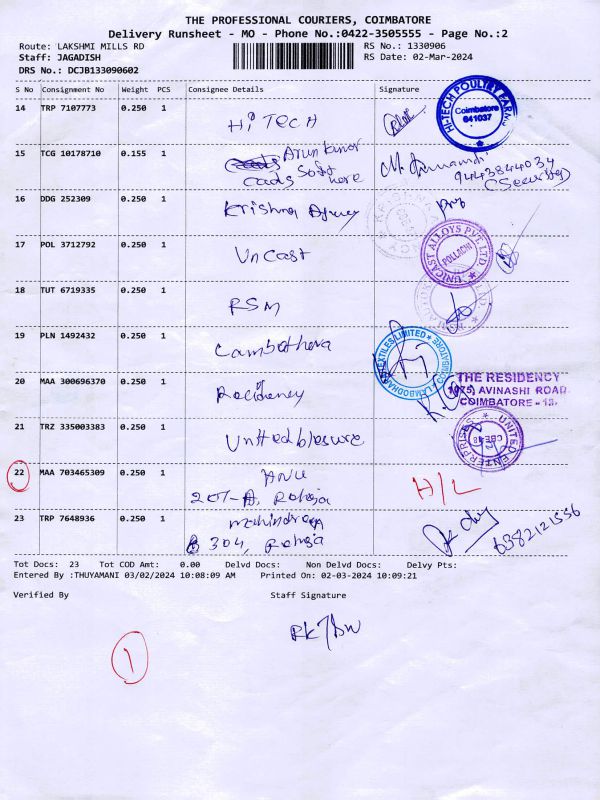 THE PROFESSIONAL COURIERS, COIMBATORE
Delivery Runsheet - MO - Phone No.:0422-3505555 - Page No.:2
Route: LAKSHMI MILLS RD
RS No.: 1330906
Staff: JAGADISH
RS Date: 02-Mar-2024
DRS No.: DCJB133090602
S No Consignment No Weight PCS Consignee Details Signature
14 TRP 7107773 0.250 1 Hi TECH
HI-TECH POULTRY FARM
Coimbatore
641037
15 TCG 10178710 0.155 1
9443844034
(Security)
16 DDG 252309 0.250 1 Krishna
17 POL 3712792 0.250 1 UnCast
UNICAST ALLOYS PVT LTD.
POLLACHI
18 TUT 6719335 0.250 1 RSM
19 PLN 1492432 0.250 1
TEXTILES LIMITED
COIMBATORE
20 MAA 300696370 0.250 1 Recidency
THE RESIDENCY
1075, AVINASHI ROAD
COIMBATORE - 18.
21 TRZ 335003383 0.250 1
UNITED ENTERPRISES
CBE-18
22 MAA 703465309 0.250 1 ANU
207-A, Raheja
H/L
23 TRP 7648936 0.250 1
304, Raheja
6382121556
Tot Docs: 23 Tot COD Amt: 0.00 Delvd Docs: Non Delvd Docs: Delvy Pts:
Entered By :THUYAMANI 03/02/2024 10:08:09 AM Printed On: 02-03-2024 10:09:21
Verified By Staff Signature
1